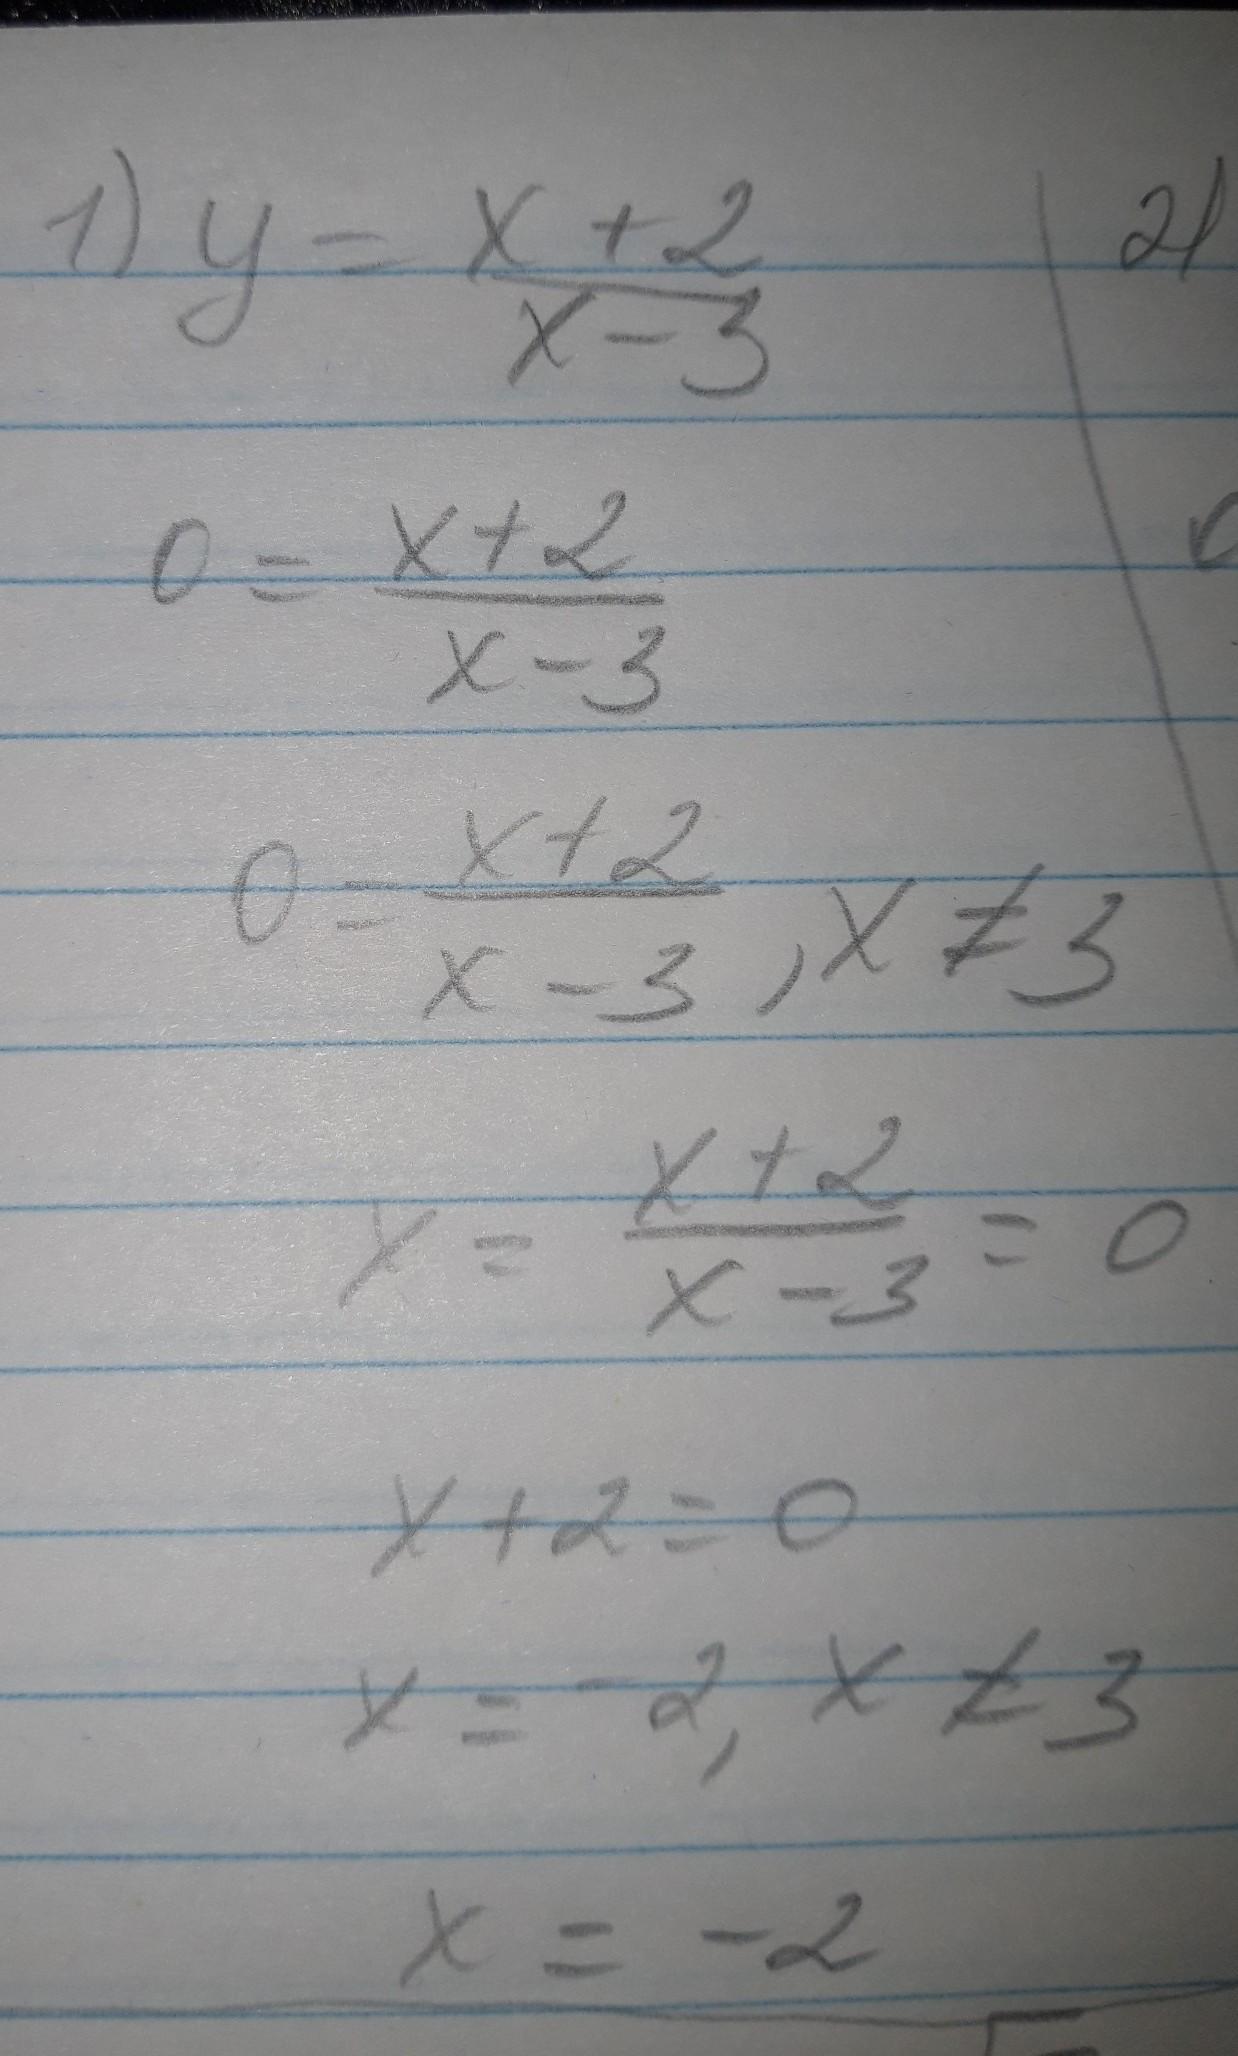 1) y = x + 2 / x - 3
2)
0 = x + 2 / x - 3
0 = x + 2 / x - 3 , x ≠ 3
x = x + 2 / x - 3 = 0
x + 2 = 0
x = -2, x ≠ 3
x = -2